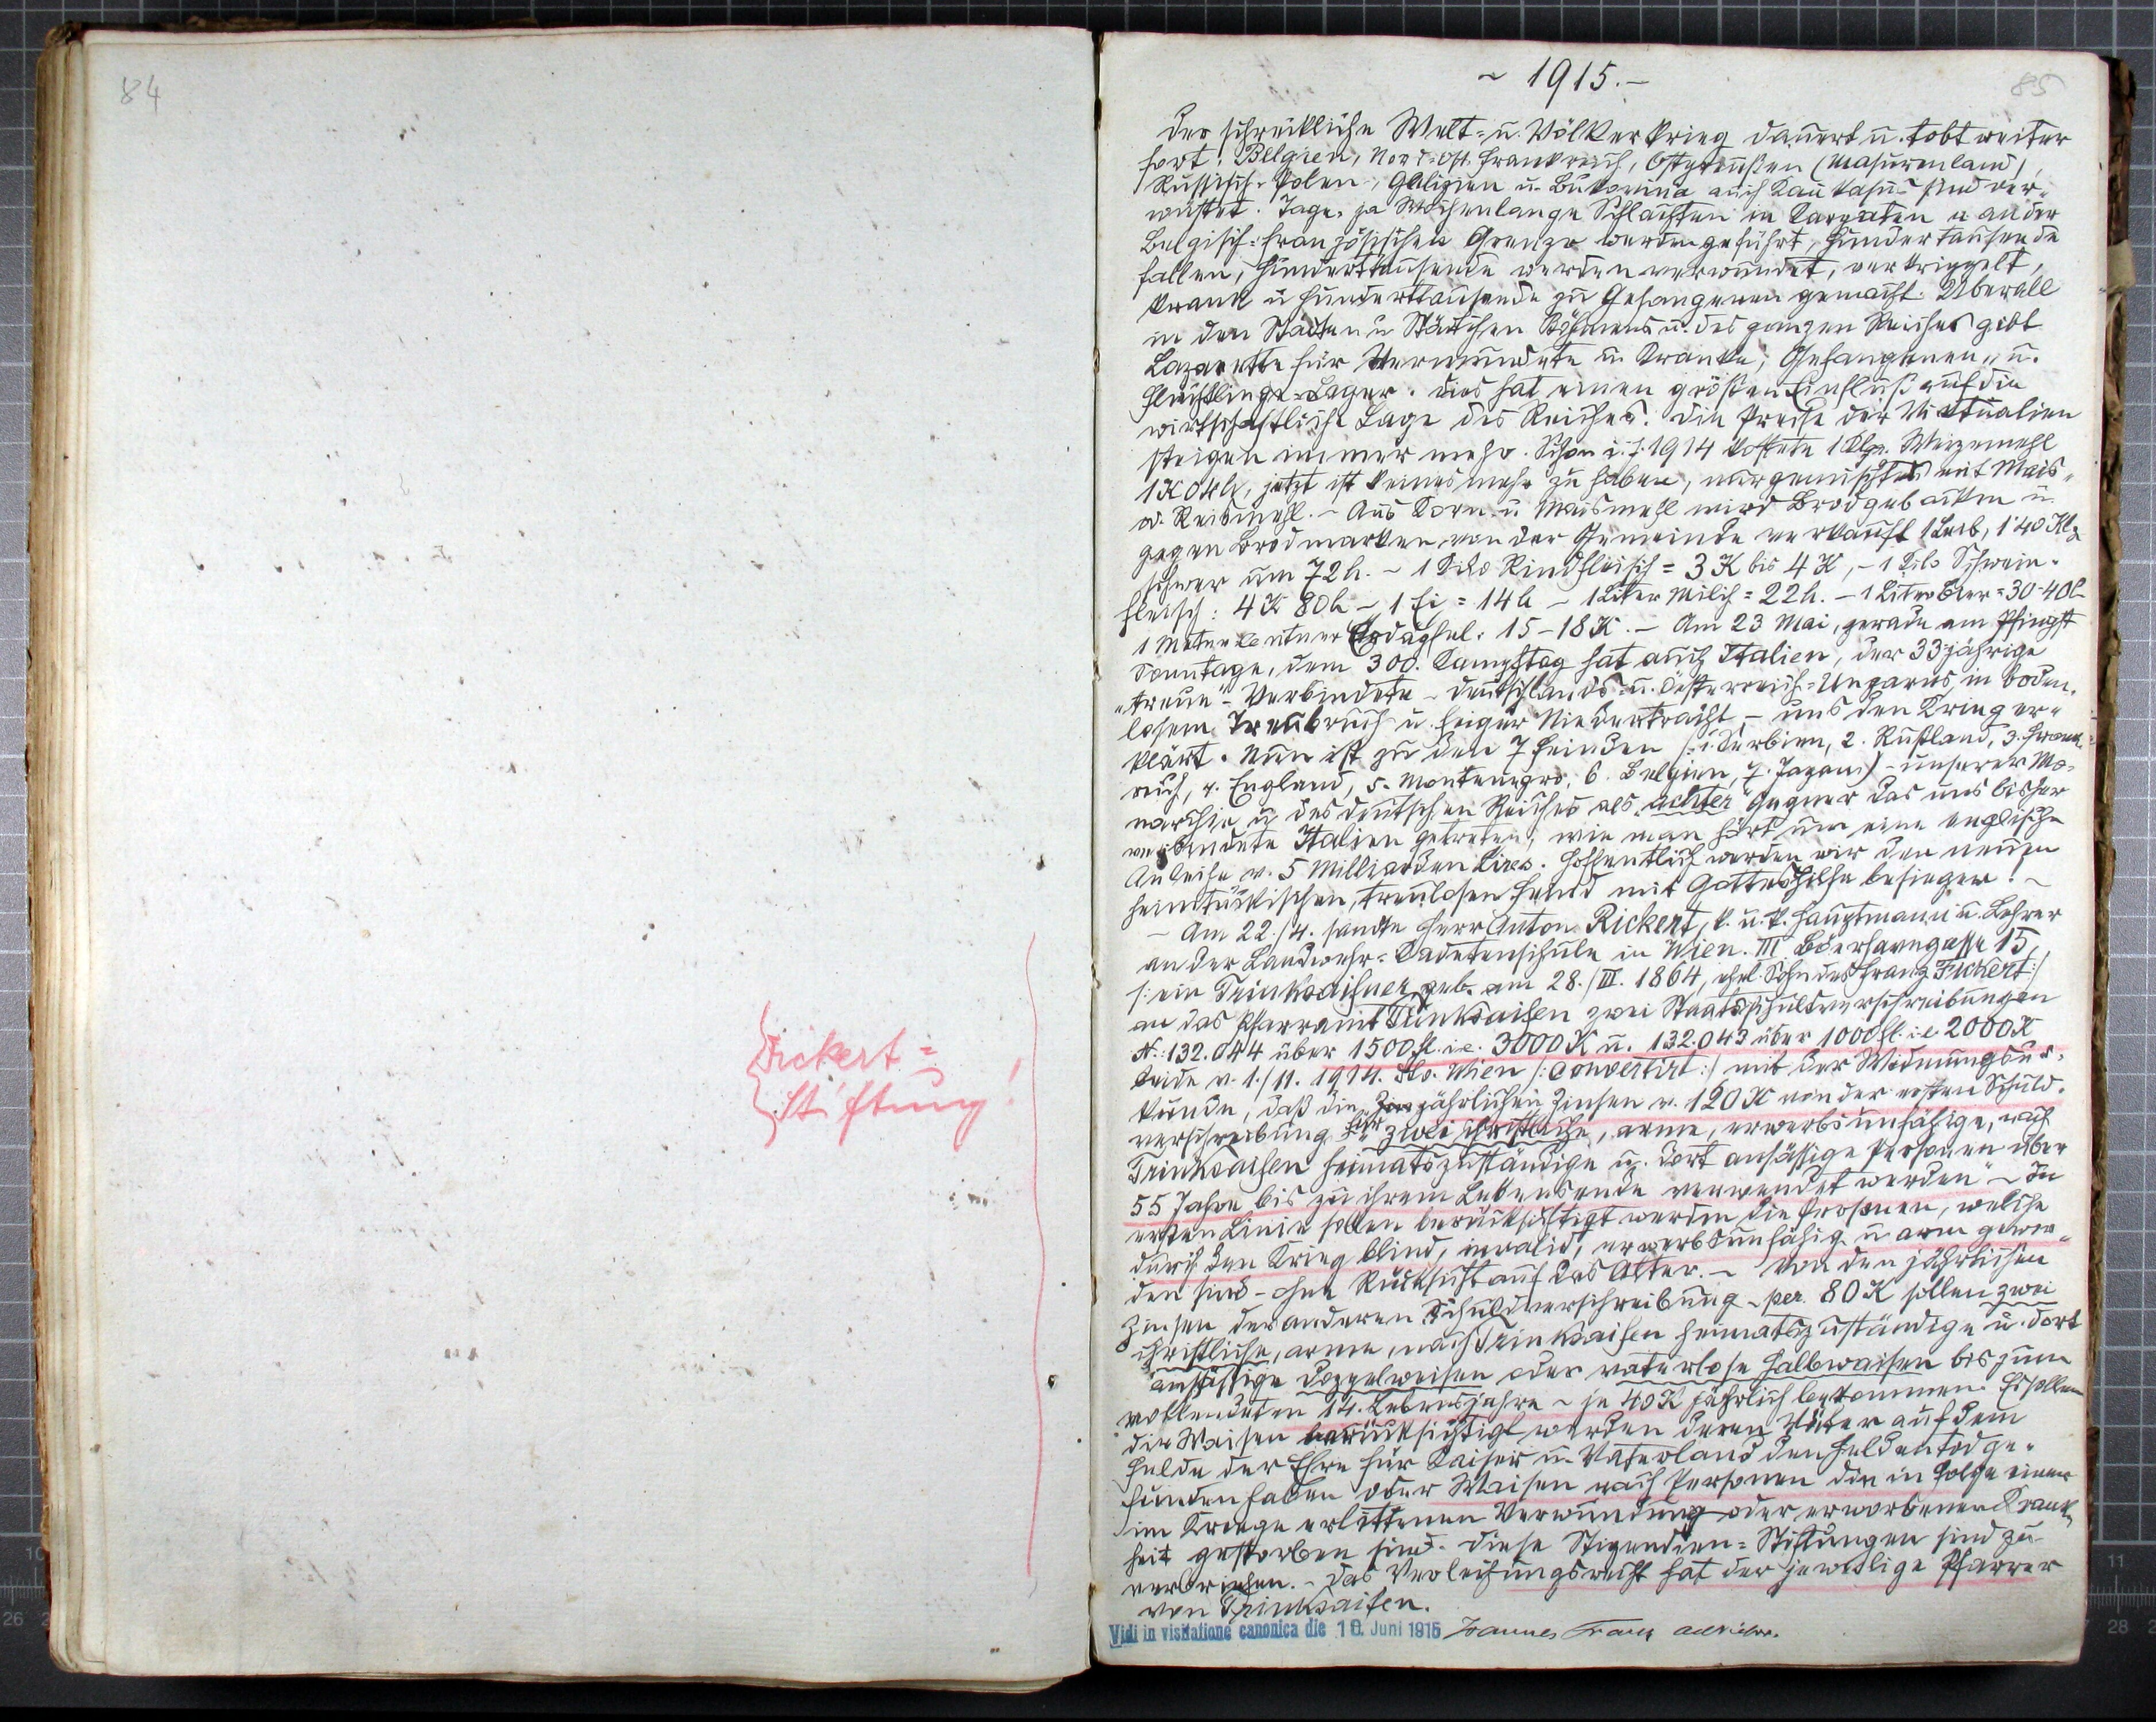 84
Rickert=
Stiftung!
85
~ 1915.–
Der schreckliche Welt= u. Völkerkrieg dauert u. tobt weiter
fort. Belgien, Nord-Ost Frankreich, Ostpreußen (Masurenland),
Russisch-Polen, Galizien u. Bukowina auch Kaukasus sind ver-
wüstet. Tage, ja Wochenlange Schlachten in Karpaten u an der
Belgisch=französischen Grenze werden geführt, hundertausende
fallen, hunderttausende werden verwundet, verkrippelt,
krank u hunderttausende zu Gefangenen gemacht. Überall
in den Städten u Städtchen Böhmens u. des ganzen Reiches gibt
Lazarette für Verwundete u. Kranke, Gefangenen- u.
Flüchtlings=Lager. Dies hat einen großen Einfluß auf die
wirtschaftliche Lage des Reiches. Die Preise der Victualien
steigen immer mehr. Schon i. J. 1914 kostete 1 Klgr. Weizemehl
1K 04h, jetzt ist keines mehr zu haben, nur gemischtes mit Mais-
od. Reismehl. – Aus Korn- u Maismehl wird Brod gebacken u.
gegen Brodmarken von der Gemeinde verkauft 1 Laib, 1'40 Klg
schwer um 72h. – 1 Kilo Rindfleisch = 3 K bis 4 K, – 1 Kilo Schwein-
fleisch: 4 K 80h – 1 Ei = 14h – 1 Liter Milch = 22h. – 1 Liter Bier = 30-40h
1 Meterzentner Erdäpfel: 15–18 K. – Am 23 Mai, gerade am Pfingst
Sonntage, dem 300. Kampftag hat auch Italien, der 33jährige
„treue" – Verbündete – Deutschlands u. Österreich=Ungarns, in boden-
losem Treubruch u. feiger Niedertracht, – uns den Krieg er-
klärt. Nun ist zu den 7 Feinden (1. Serbien, 2. Rußland, 3. Frank-
reich, 4. England, 5. Montenegro, 6. Belgien, 7. Japan) – unserer Mo-
narchie u des deutschen Reiches als „achter" Gegner das uns bisher
verbündete Italien getreten, wie man hört um eine englische
Anleihe v. 5 Milliarden Lires. Hoffentlich werden wir den neuen
heimtückischen, treulosen Feind mit Gotteshilfe besiegen! –
– Am 22./4. sandte Herr Anton Rickert, k. u. k. Hauptmann u. Lehrer
an der Landwehr=Kadetenschule in Wien. III Boerhavegasse 15,
/: ein Trinksaifner, geb. am 28./III. 1864, ehel. Sohn des Franz Fickert:/
an das Pfarramt Trinksaifen zwei Staatsschuldverschreibungen
N.: 132.044 über 1500 fl. i.e. 3000 K u. 132.043 über 1000 fl. i.e 2000 K
beide v. 1./11. 1914. Wien /:convertirt:/ mit der Widmungsur-
kunde, daß die jährlichen Zinsen v. 120 K von der ersten Schuld-
verschreibung für „zwei christliche, arme, erwerbsunfähige, nach
Trinksaifen heimatszuständige u. dort ansässige Personen über
55 Jahre bis zu ihrem Lebensende verwendet werden" – In
erster Linie sollen berücksichtigt werden die Personen, welche
durch den Krieg blind, invalid, erwerbsunfähig u arm gewor-
den sind – ohne Rücksicht auf das Alter. – Von den jährlichen
Zinsen der anderen Schuldverschreibung – per. 80 K sollen zwei
christliche, arme, nach Trinksaifen heimatszuständige u. dort
ansässige Doppelweisen oder vaterlose Halbwaisen bis zum
vollendeten 14. Lebensjahre – je 40 K jährlich bekommen. Es sollen
die Waisen berücksichtigt werden deren Väter auf dem
Felde der Ehre für Kaiser u. Vaterland den Heldentod ge-
funden haben oder Waisen nach Personen die in Folge einer
im Kriege erlittenen Verwundung oder erworbenen Krank-
heit gestorben sind. Diese Stipendien=Stiftungen sind zu
verbriefen. – Das Verleihungsrecht hat der jeweilige Pfarrer
von Trinksaifen.
Vidi in visitatione canonica die 10. Juni 1915 Joannes